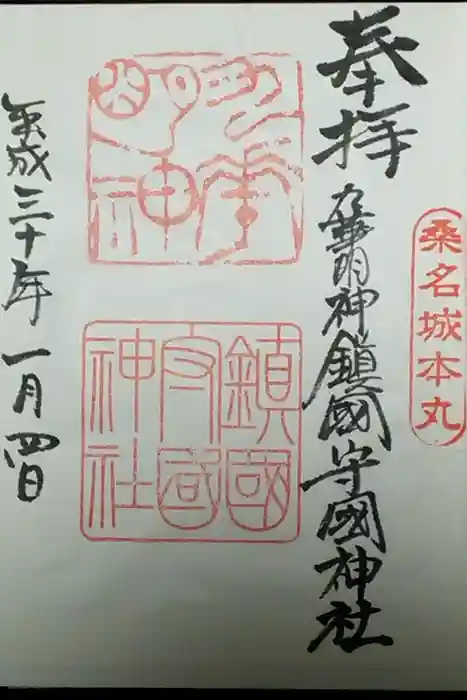 桑名城本丸
奉拝
九華明神鎮國守國神社
九華
明神
鎮國
守國
神社
平成三十年一月四日